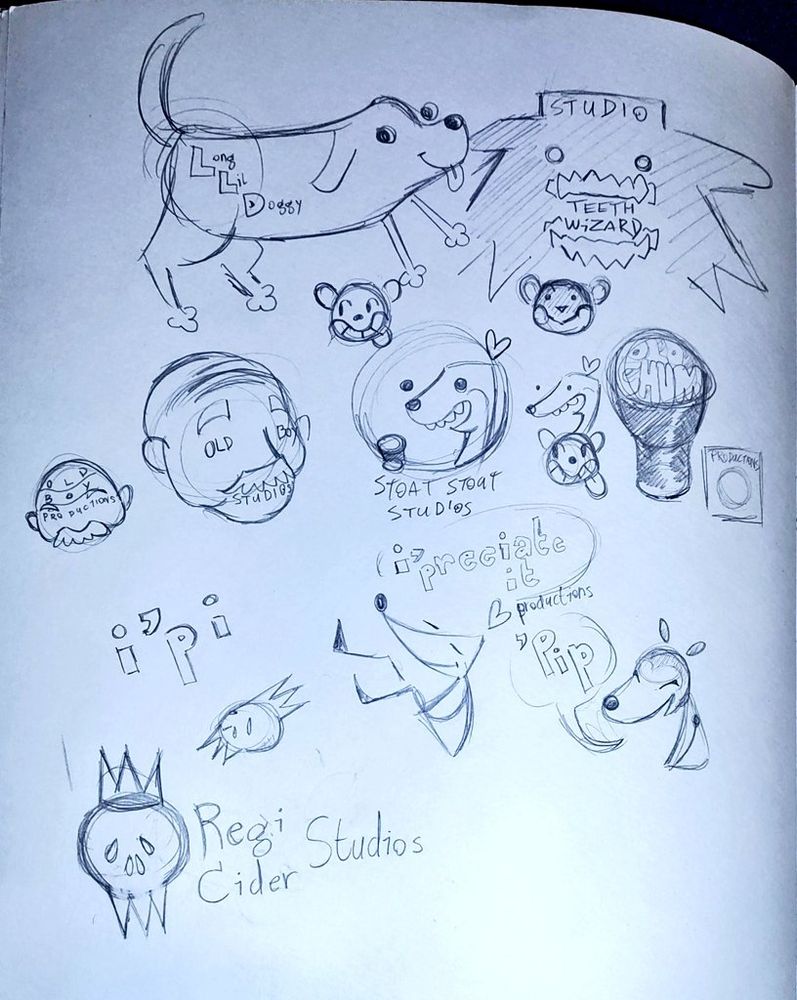 STUDIO
Long
Lil
Doggy
TEETH
WIZARD
OLD
BOY
STUDIOS
OLD
BOY
PRODUCTIONS
STOAT STOUT
STUDIOS
CHUM
PRODUCTIONS
i'preciate
it
productions
i'pi
'Pip
Regi
Cider Studios